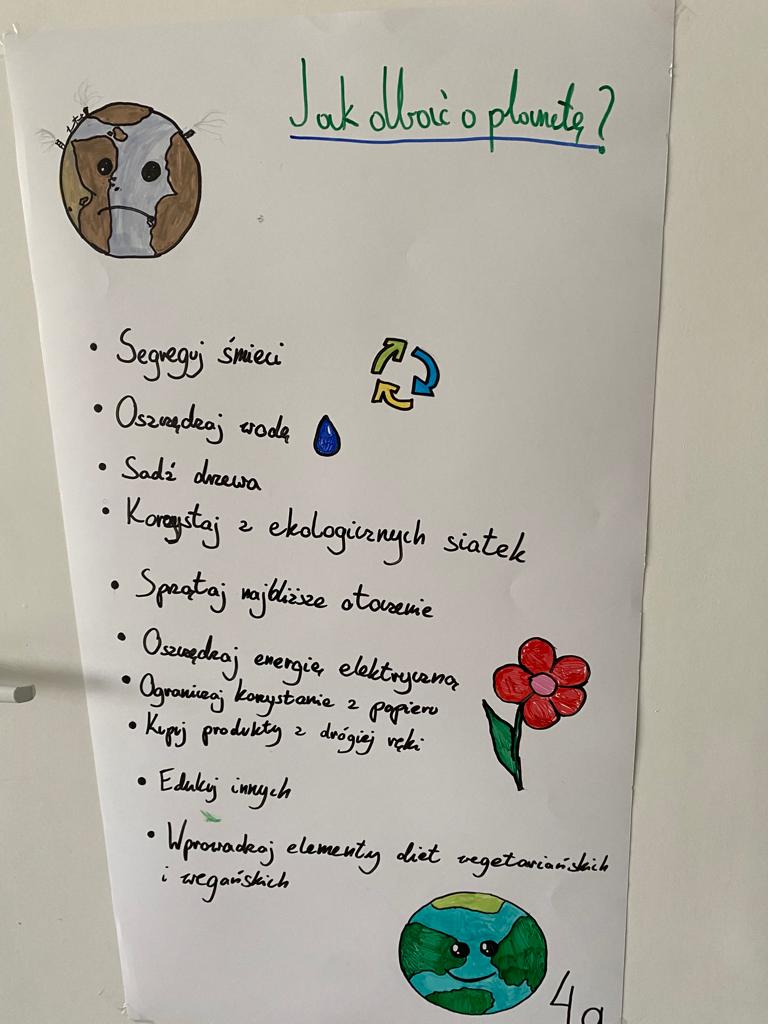 Jak dbać o planetę?
• Segreguj śmieci
• Oszczędzaj wodę
• Sadź drzewa
• Korzystaj z ekologicznych siatek
• Sprzątaj najbliższe otoczenie
• Oszczędzaj energię elektryczną
• Ograniczaj korzystanie z papieru
• Kupuj produkty z drógiej ręki
• Edukuj innych
• Wprowadzaj elementy diet wegetariańskich
i wegańskich
4a